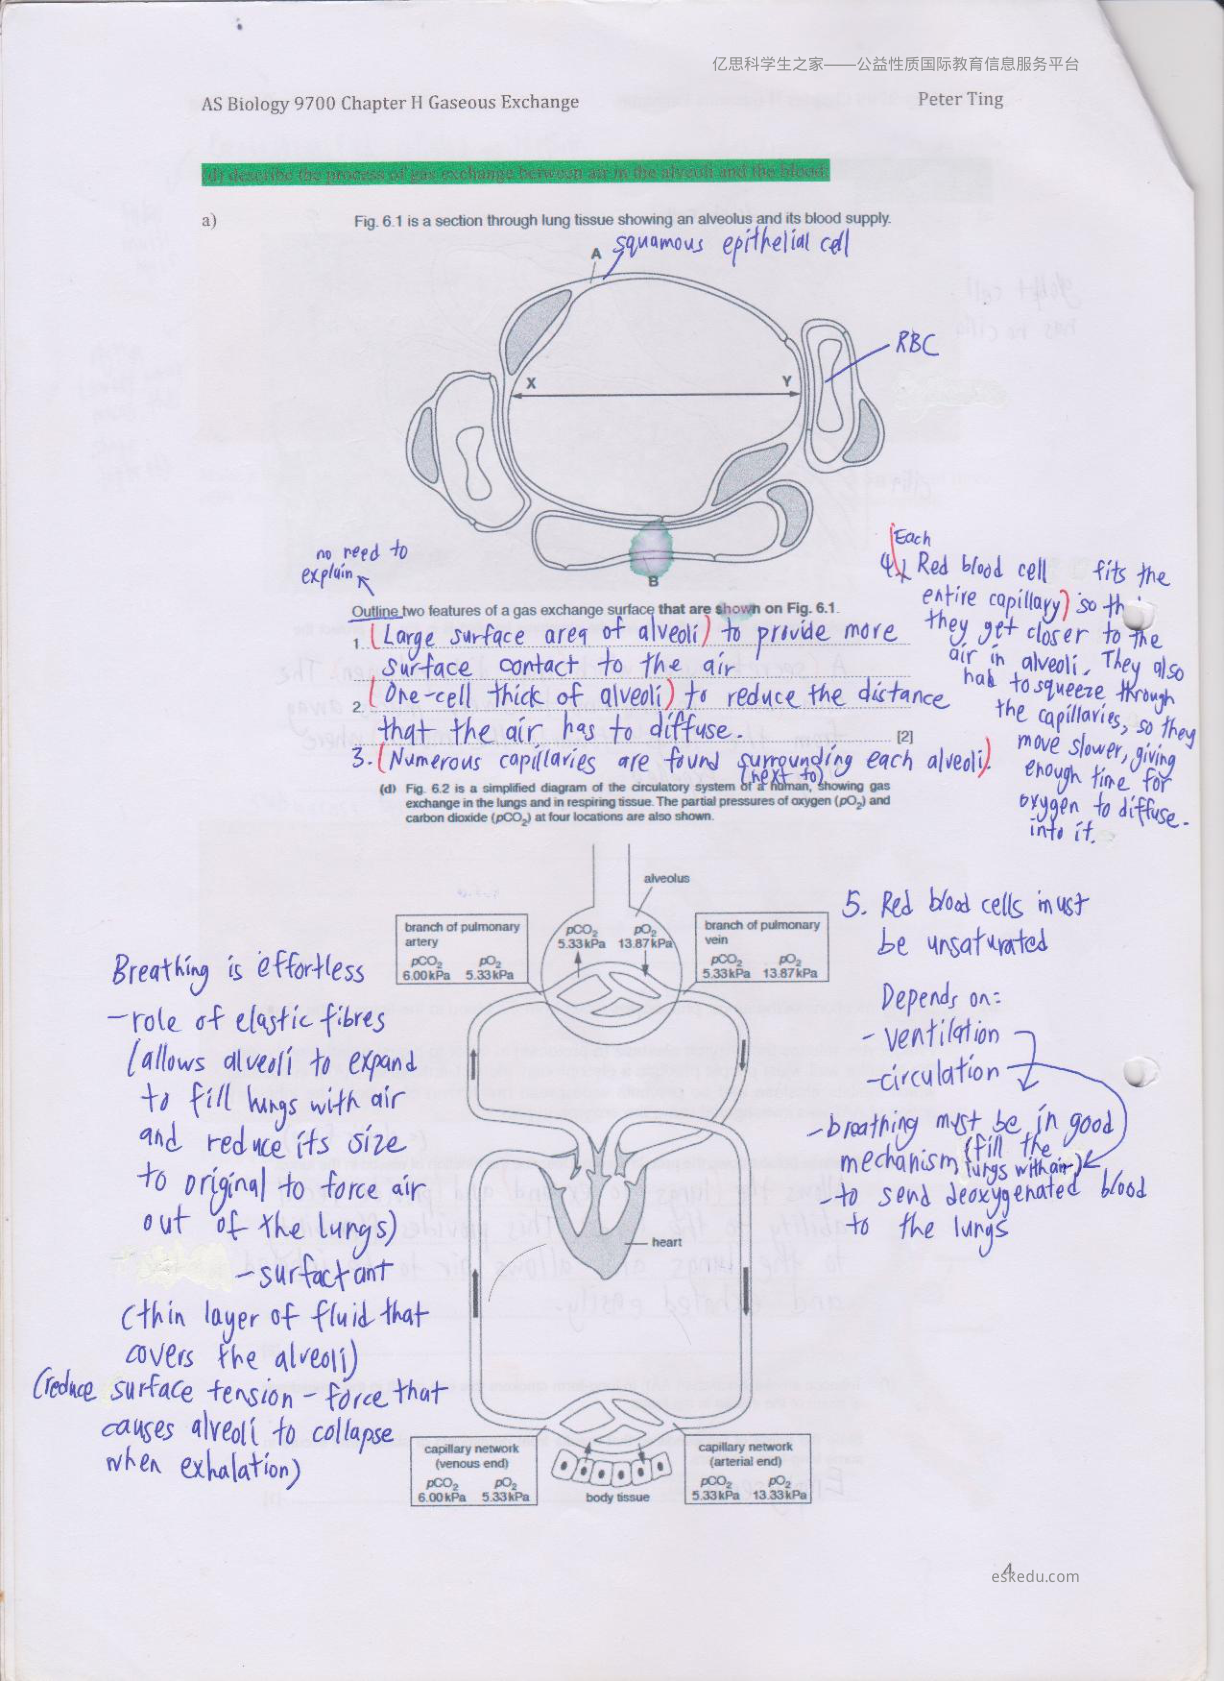 亿思科学生之家——公益性质国际教育信息服务平台
AS Biology 9700 Chapter H Gaseous Exchange
Peter Ting
(d) describe the process of gas exchange between air in the alveoli and the blood
a)
Fig. 6.1 is a section through lung tissue showing an alveolus and its blood supply.
squamous epithelial cell
A
RBC
X
Y
B
no need to
explain
Outline two features of a gas exchange surface that are shown on Fig. 6.1.
1. (Large surface area of alveoli) to provide more
surface contact to the air
2. (One-cell thick of alveoli) to reduce the distance
that the air has to diffuse.
[2]
3. (Numerous capillaries are found surrounding each alveoli).
(next to)
Each
4. Red blood cell fits the
entire capillary) so
they get closer to the
air in alveoli. They also
had to squeeze through
the capillaries, so they
move slower, giving
enough time for
oxygen to diffuse
into it.
(d) Fig. 6.2 is a simplified diagram of the circulatory system of a human, showing gas
exchange in the lungs and in respiring tissue. The partial pressures of oxygen (pO2) and
carbon dioxide (pCO2) at four locations are also shown.
alveolus
branch of pulmonary
artery
pCO2 pO2
6.00kPa 5.33kPa
pCO2 pO2
5.33kPa 13.87kPa
branch of pulmonary
vein
pCO2 pO2
5.33kPa 13.87kPa
5. Red blood cells must
be unsaturated
Depends on:
- ventilation
- circulation
- breathing must be in good
mechanism (fill the
lungs with air)
- to send deoxygenated blood
to the lungs
Breathing is effortless
- role of elastic fibres
(allows alveoli to expand
to fill lungs with air
and reduce its size
to original to force air
out of the lungs)
- surfactant
(thin layer of fluid that
covers the alveoli)
(reduce surface tension - force that
causes alveoli to collapse
when exhalation)
heart
capillary network
(venous end)
pCO2 pO2
6.00kPa 5.33kPa
body tissue
capillary network
(arterial end)
pCO2 pO2
5.33kPa 13.33kPa
4
eskedu.com